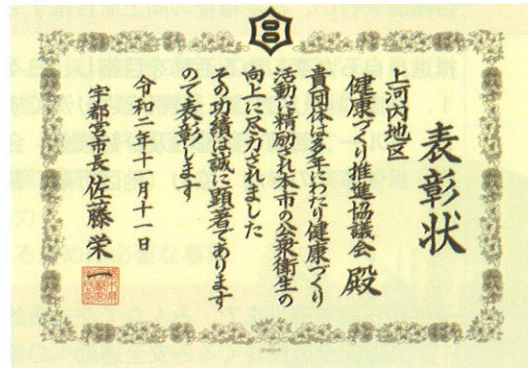 表彰状
上河内地区
健康づくり推進協議会 殿
貴団体は多年にわたり健康づくり
活動に精励され本市の公衆衛生の
向上に尽力されました
その功績は誠に顕著であります
ので表彰します
令和二年十一月十一日
宇都宮市長 佐藤栄一